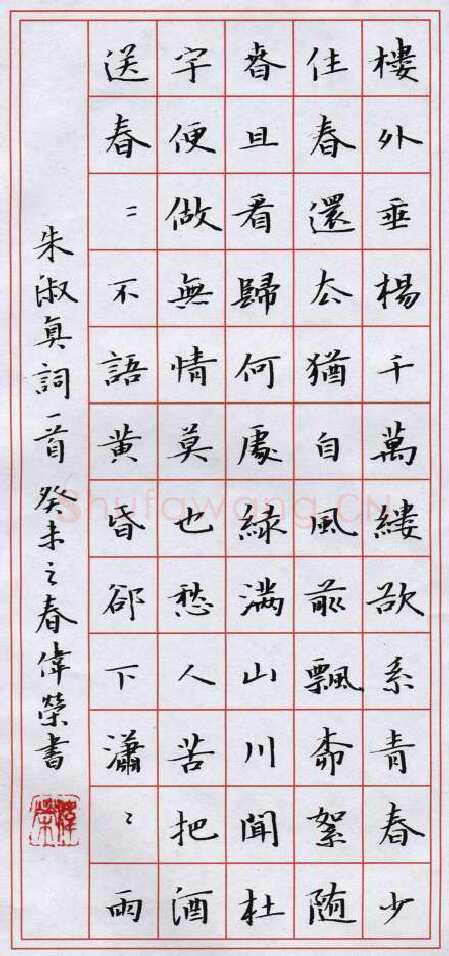 樓外垂楊千萬縷欲系青春少
住春還去猶自風前飄柳絮随
春且看歸何處綠滿山川聞杜
宇便做無情莫也愁人苦把酒
送春〻不語黃昏卻下瀟〻雨
朱淑真詞一首 癸未之春偉榮書
偉榮
Shufawang.CN